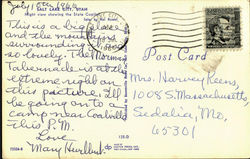 July 15th 1966
SALT LAKE CITY, UTAH
Night view showing the State Capitol
This is a big place
and the mountains
surrounding
so lovely. The Mormon
Tabernacle is at the
extreme right on
this picture. I'll
be going on to
camp near Coalville
this P.M.
Love
Mary Hurlbut
Post Card
Mrs. Harvey Keens,
1008 S. Massachusetts
Sedalia, Mo.
45301